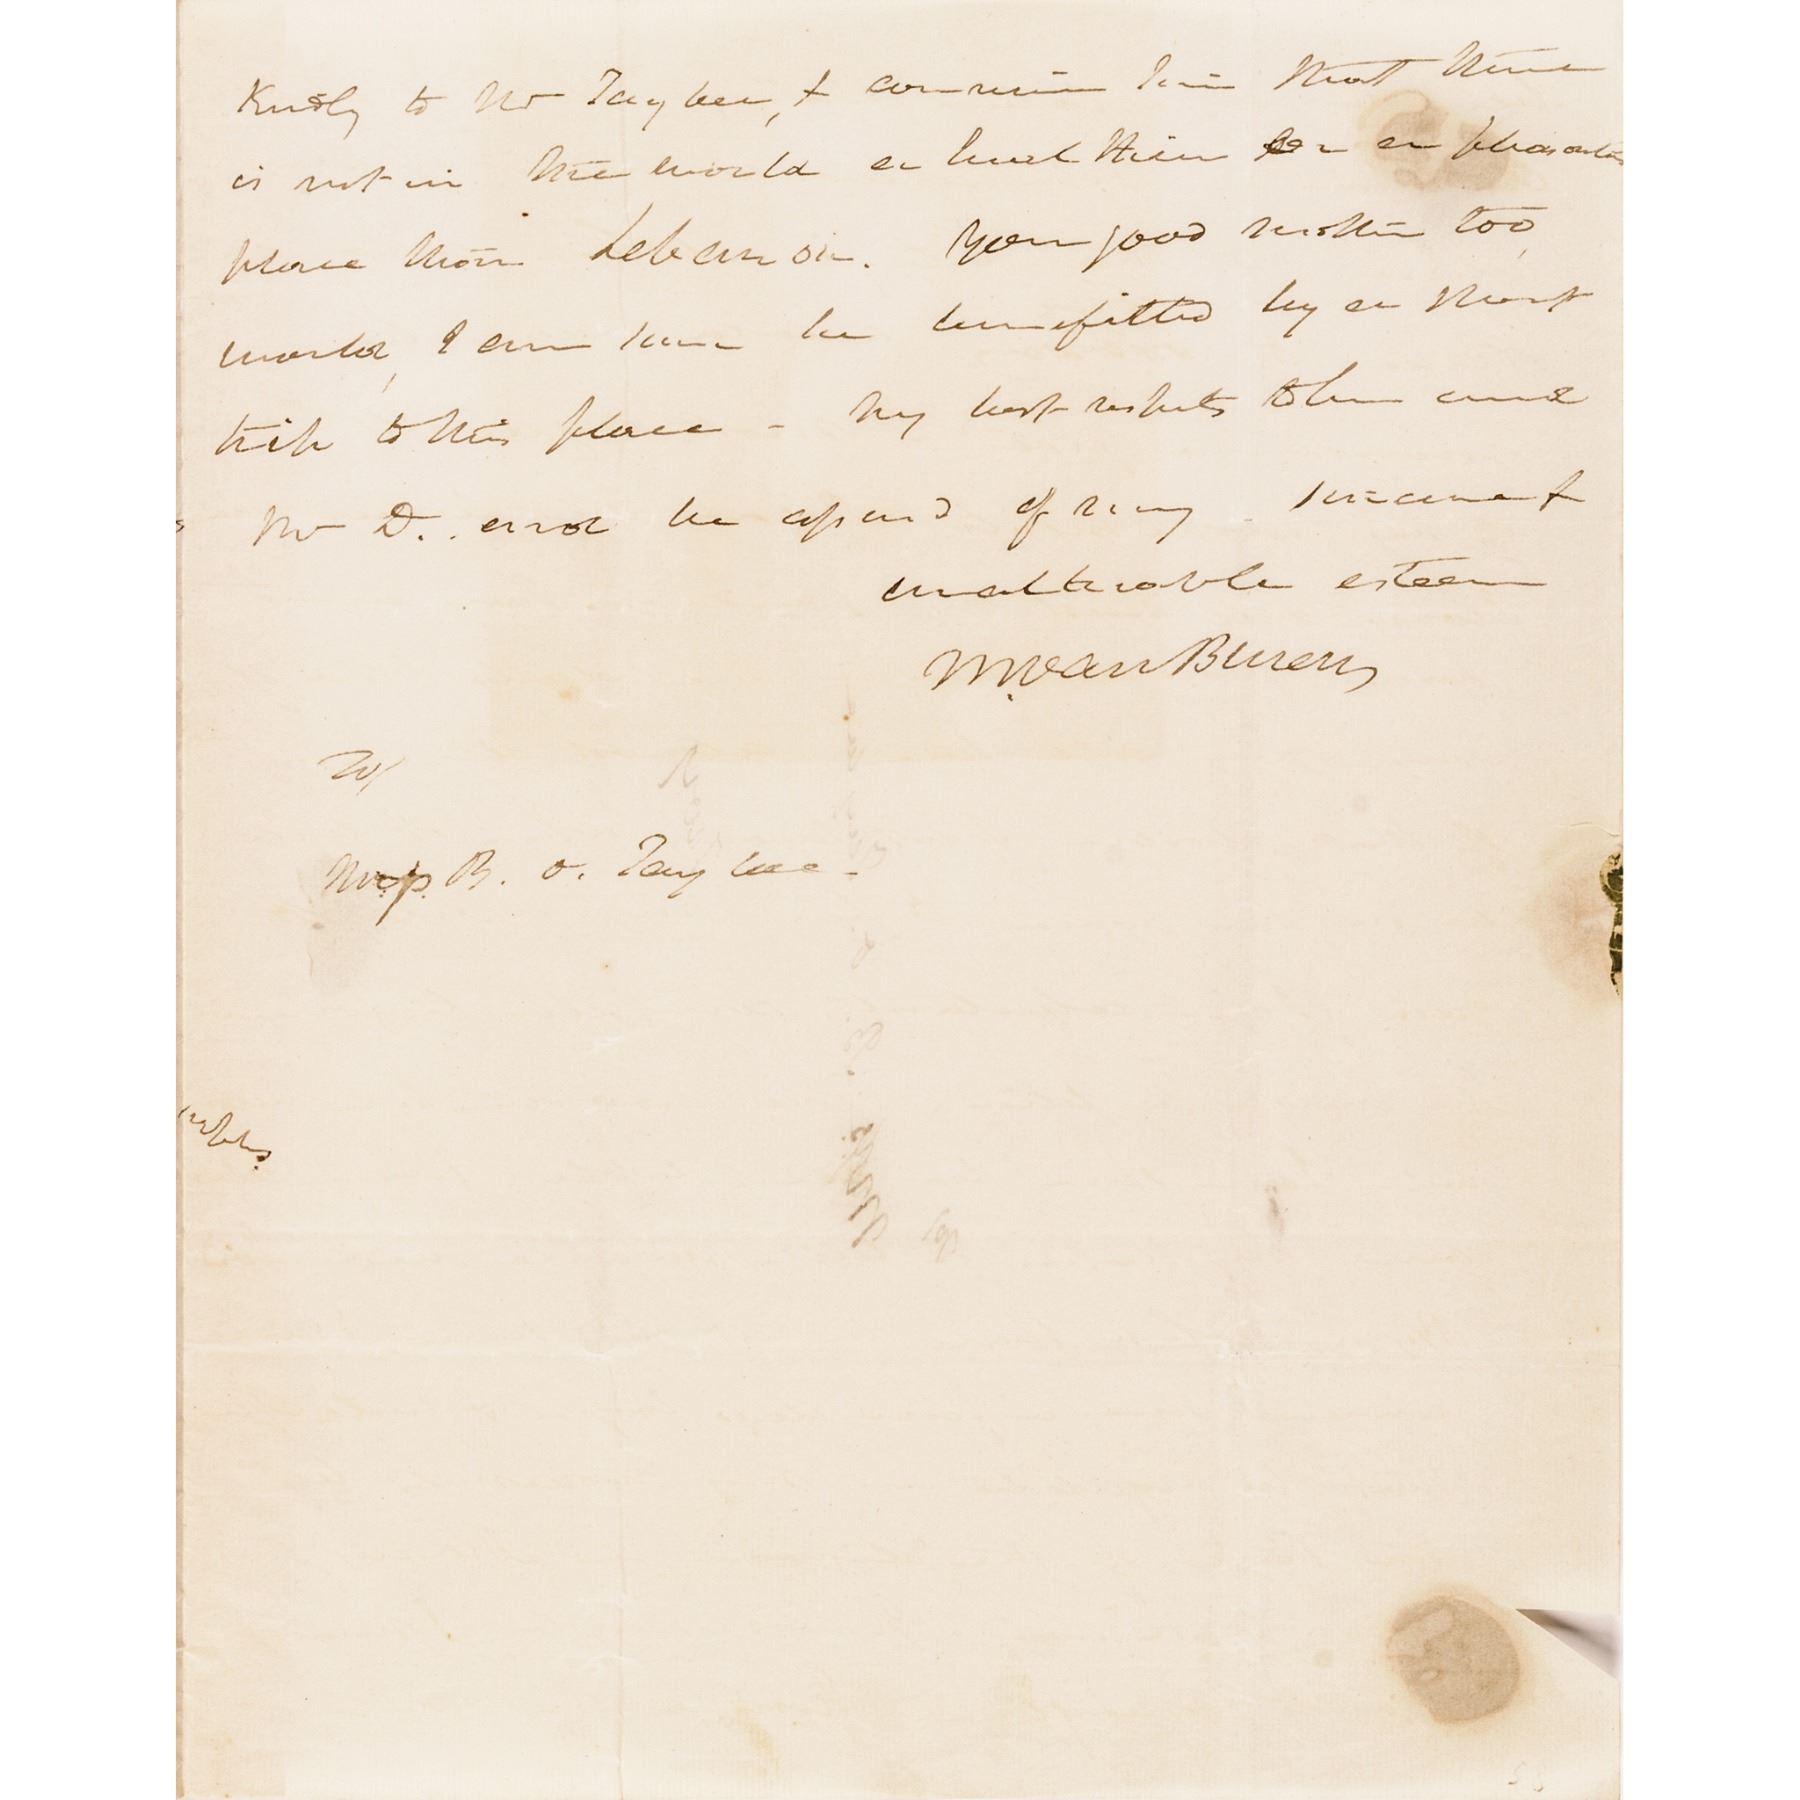 Kindly to Mr Tayloe, & convince him that there
is not in the world a healthier or a pleasanter
place than Lebanon. Your good mother too,
would, I am sure be benefitted by a short
trip to this place - My best respects to her and
Mr D. and be assured of my sincere &
unalterable esteem
M. Van Buren
To/
Mrs. B. O. Tayloe